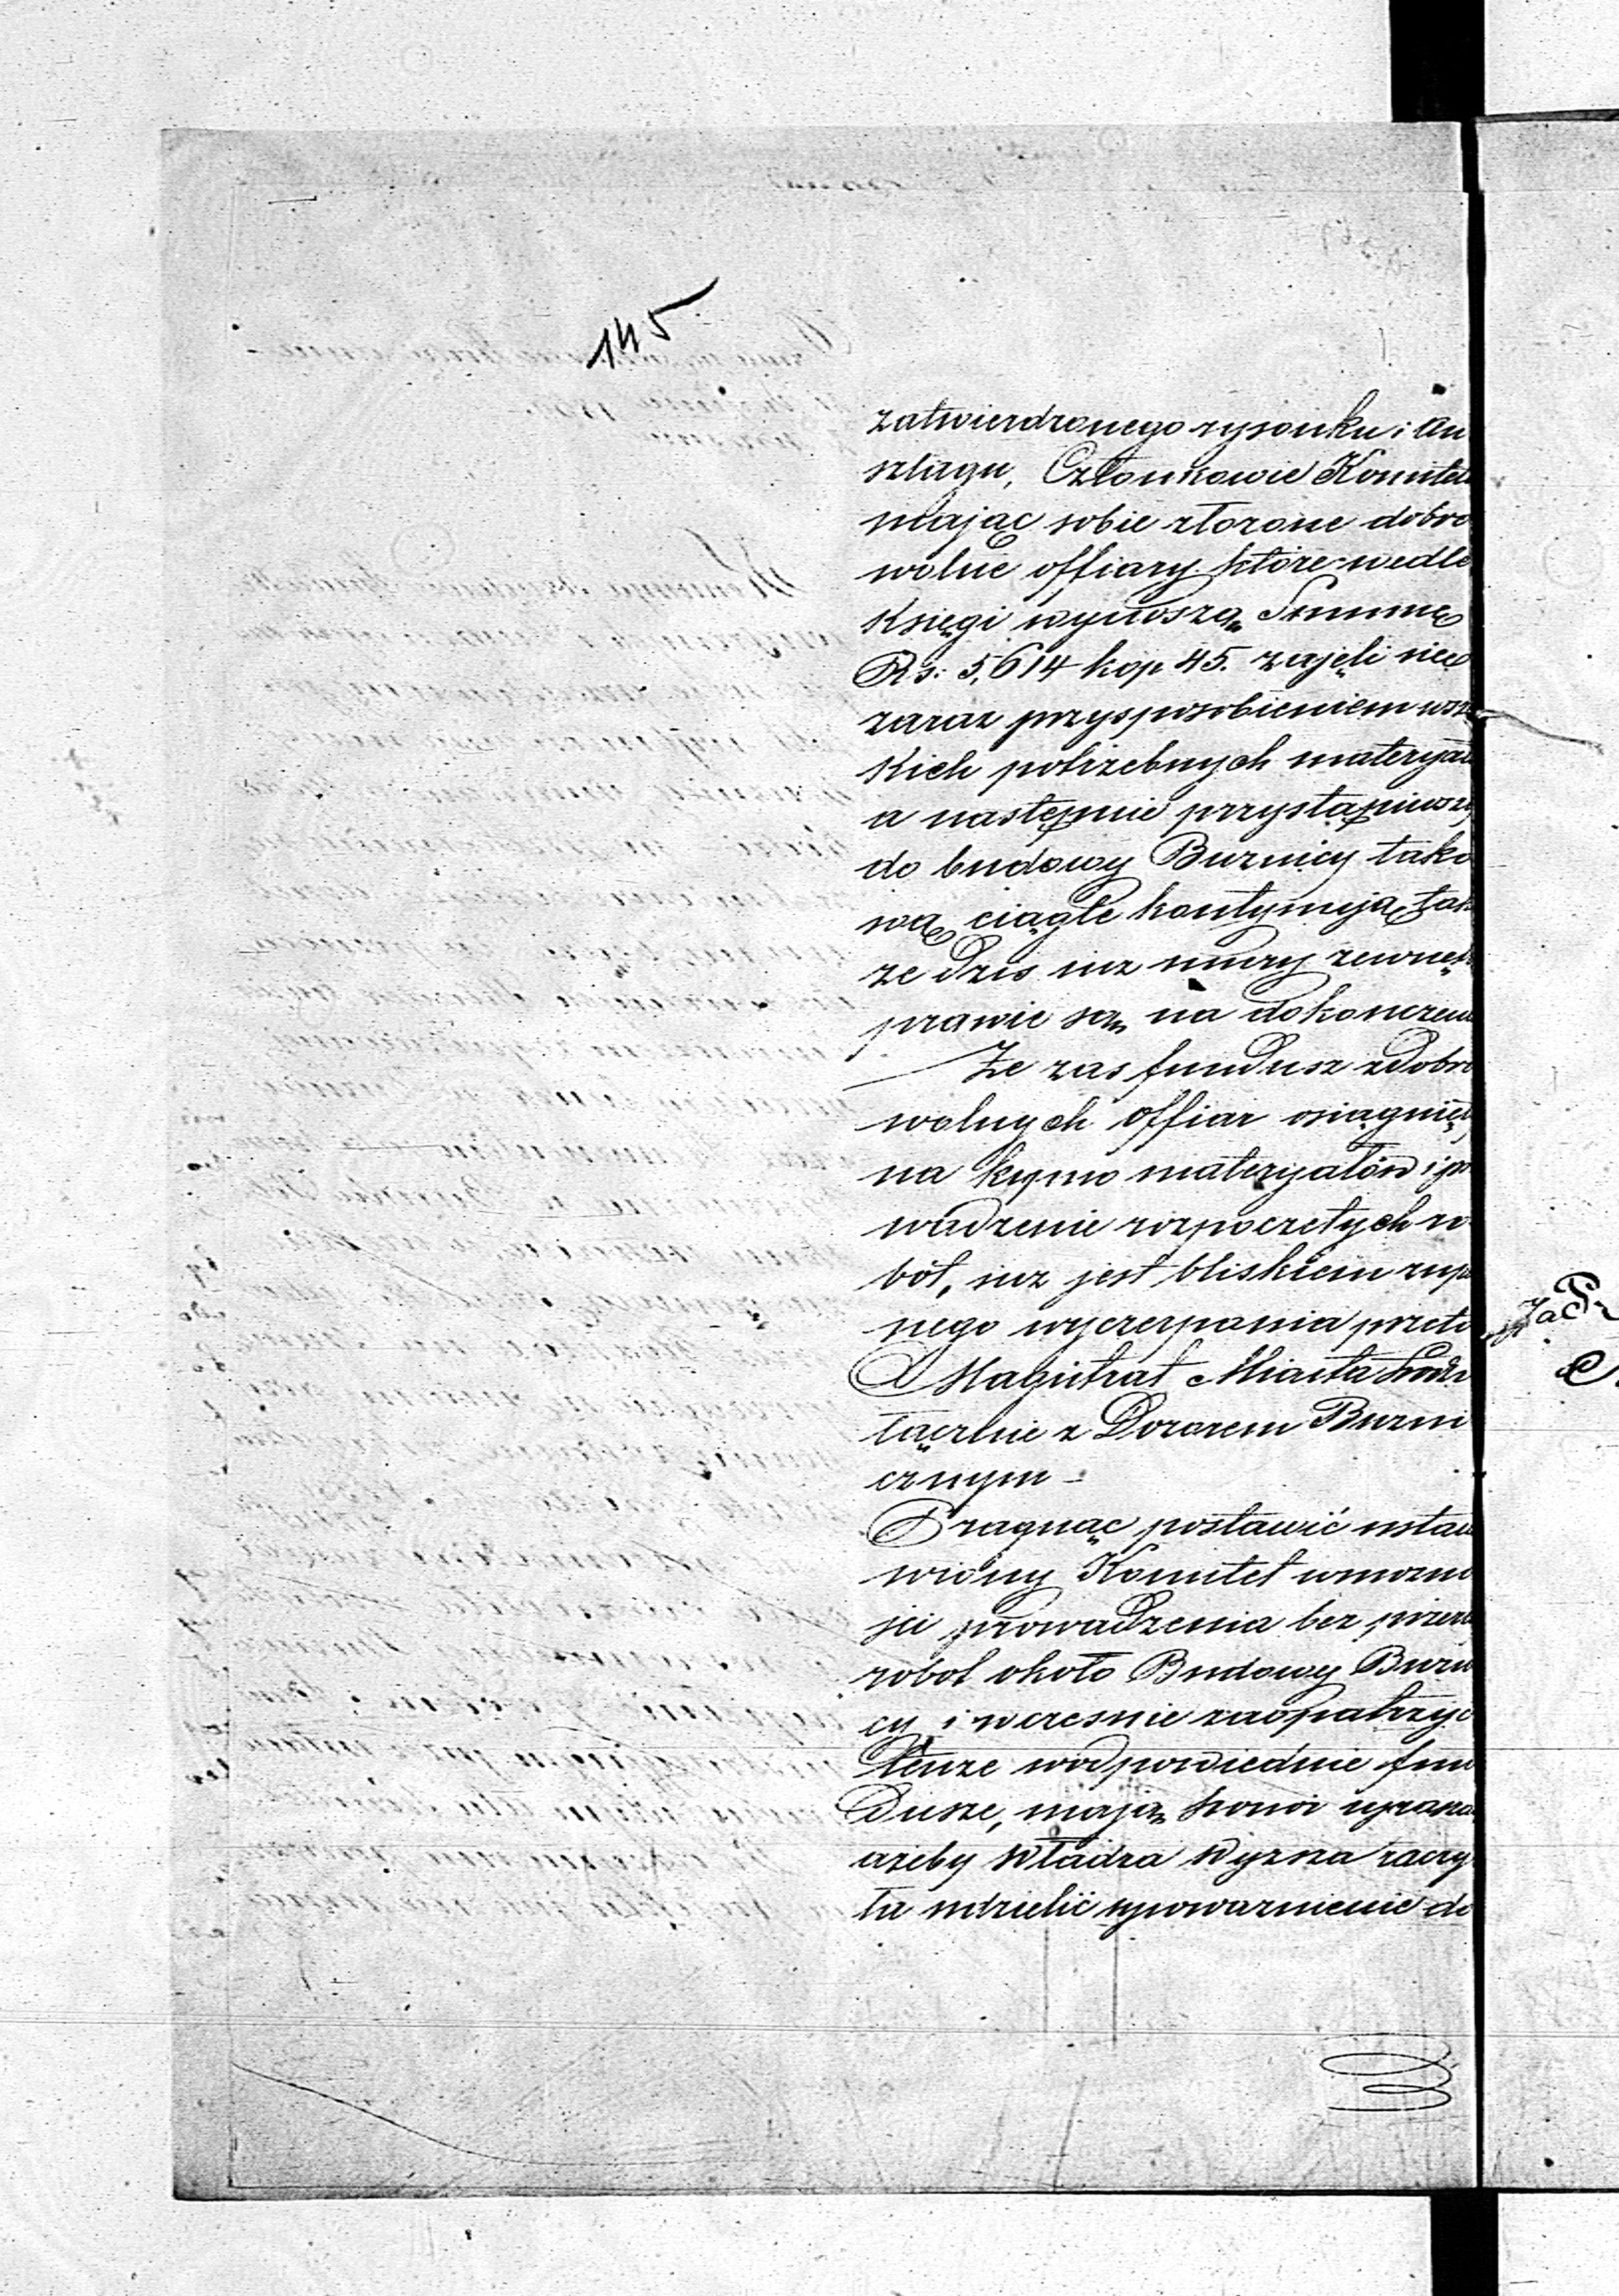 145
zatwierdzonego rysónku i An
szlagu, Członkowie Komitet
mając sobie złozone dobro
wolne offiary które wedle
Księgi wynoszą Summę
Rs: 5,614 kop 45. zajęli się
zaraz przysposobieniem wsz
kich potrzebnych materyał
a następnie przystąpiwszy
do budowy Buznicy tako
wą ciągle kontynują tak
ze Dzis iuz mury zewnęt
prawie są na dokonczeni
Ze zas fundusz z Dobro
wolnych offiar osiągnię
na kupno materyałów i pro
wadzenie rozpoczetych ro
bót, iuz jest bliskiem zup
nego wyczerpania przeto
Magistrat Miasta Łodzi
łącznie z Dozorem Buzni
cznym -
Pragnąc postawić ustan
wiony Komitet w mozno
sci prowadzenia bez przerw
robot około Budowy Buzni
cy i wczesnie zaopatrzyc
tenze w odpowiednie fun
Dusze, mają honor upraszać
azeby Władza Wyzsza raczy
ła udzielić upowaznienie do